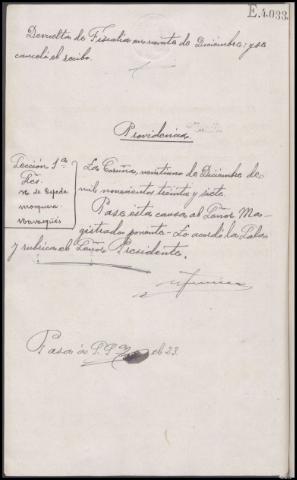 E.4.033
Devuelta de Fiscalia en veinte de Diciembre; y se
cancela el recibo.
Providencia
Sección 1ª
Sres.
La Coruña, veintiuno de Diciembre de
mil novecientos treinta y siete
Pase esta causa al Señor Ma-
gistrado ponente.- Lo acordó la Sala
y rubrica el Señor Presidente.
Pasa a el 23.